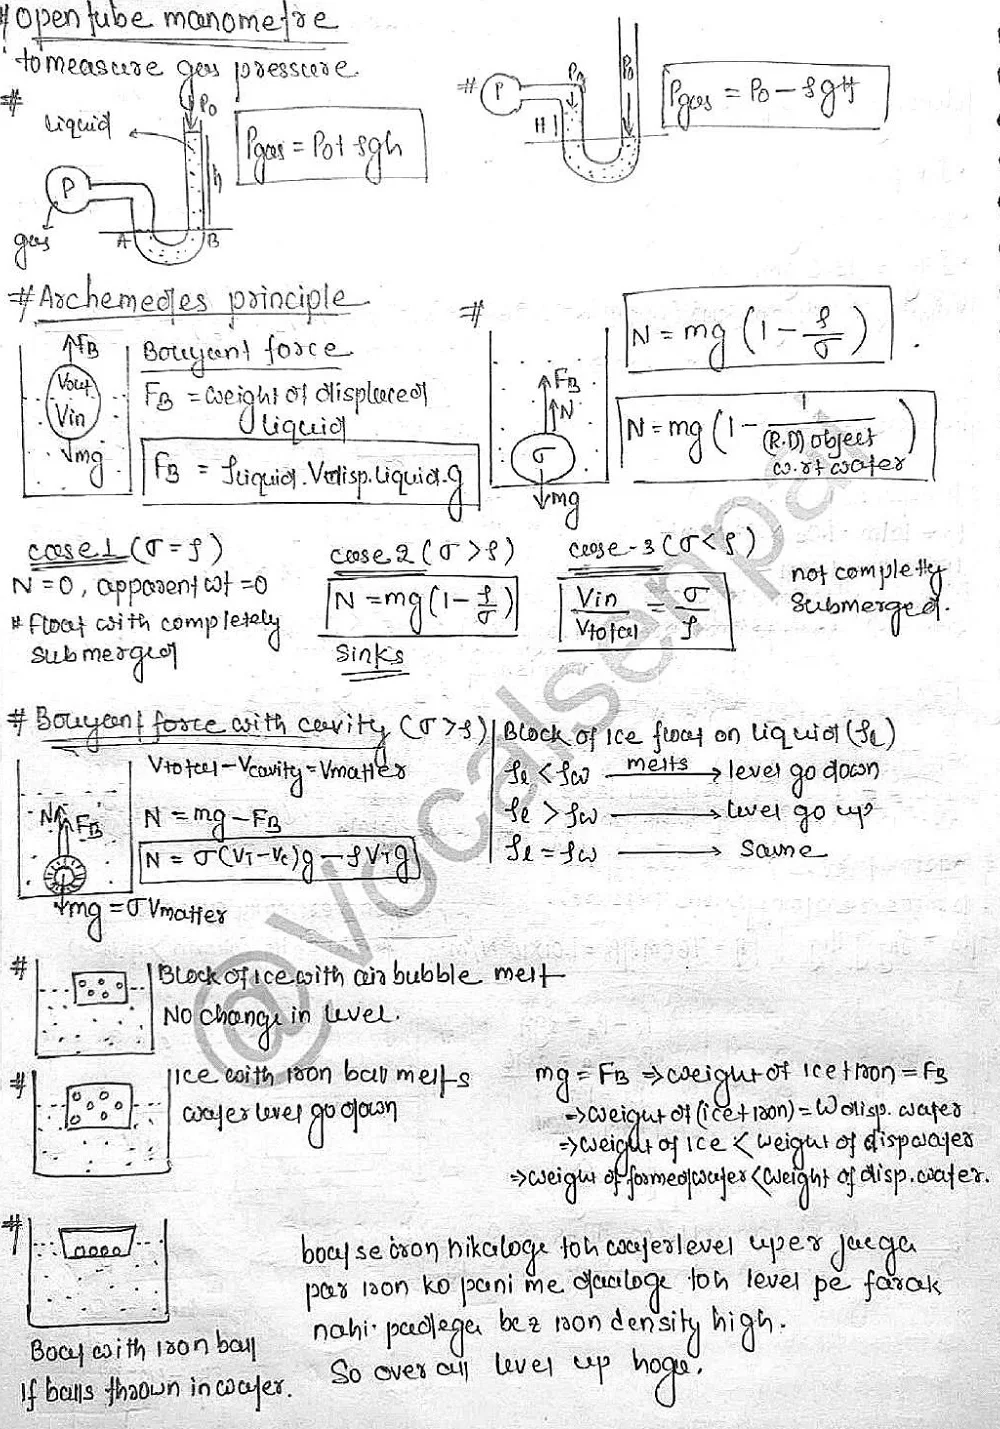 # Open tube manometre
to measure gas pressure.
#
P0
liquid
Pgas = P0 + ρgh
h
P
gas
A
B
#
P
P0
H
Pgas = P0 - ρgH
# Archemedes principle
FB
Vout
Vin
mg
Bouyant force
FB = weight of displaced
liquid
FB = ρliquid. Vdisp. liquid. g
#
FB
N
σ
mg
N = mg (1 - ρ/σ).
N = mg (1 - 1/(R.D) object w.r.t water)
case 1 (σ = ρ)
N = 0, apparent wt = 0
# Float with completely
submerged
case 2 (σ > ρ)
N = mg (1 - ρ/σ)
Sinks
case - 3 (σ < ρ)
Vin/Vtotal = σ/ρ
not completly
submerged.
# Bouyant force with cavity (σ > ρ)
Vtotal - Vcavity = Vmatter
N
FB
N = mg - FB
N = σ(VT - Vc)g - ρVTg
mg = σ Vmatter
Block of ice float on liquid (ρl)
ρl < ρw melts → level go down
ρl > ρw → level go up
ρl = ρw → same
# Block of ice with air bubble melt
No change in level.
# Ice with iron ball melts
water level go down
mg = FB ⇒ weight of ice + iron = FB
⇒ weight of (ice + iron) = W disp. water
⇒ weight of ice < weight of disp water
⇒ weight of formed water < weight of disp. water.
#
Boat with iron ball
If balls thrown in water.
boat se iron nikaloge toh water level uper jaega
par iron ko pani me daaloge toh level pe farak
nahi padega bcz iron density high.
So over all level up hoga.
@Vocalsenpai